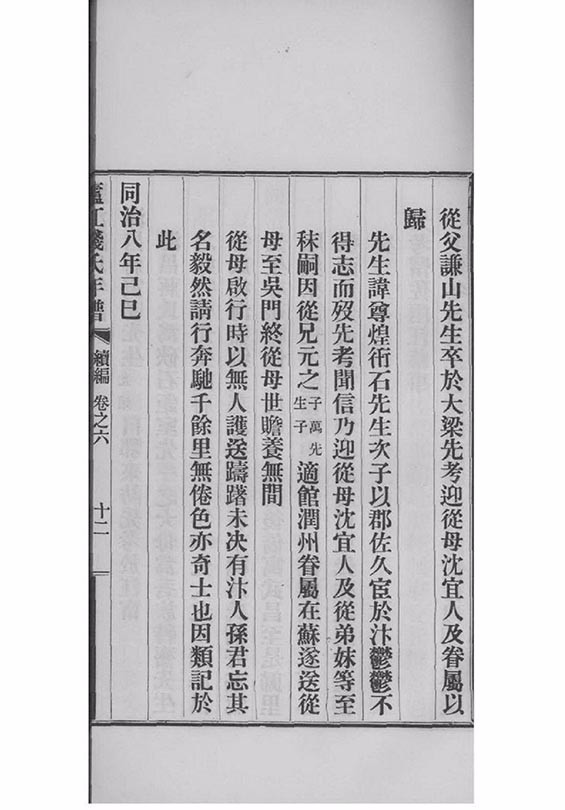 從父謙山先生卒於大梁先考迎從母沈宜人及眷屬以
歸
先生諱尊煌衎石先生次子以郡佐久宦於汴鬱鬱不
得志而歿先考聞信乃迎從母沈宜人及從弟妹等至
秣嗣因從兄元之子萬先生子適館潤州眷屬在蘇遂送從
母至吳門終從母世贍養無間
從母啟行時以無人護送躊躇未決有汴人孫君忘其
名毅然請行奔馳千餘里無倦色亦奇士也因類記於
此
同治八年己巳
廬江錢氏年譜 續編 卷之六 十二